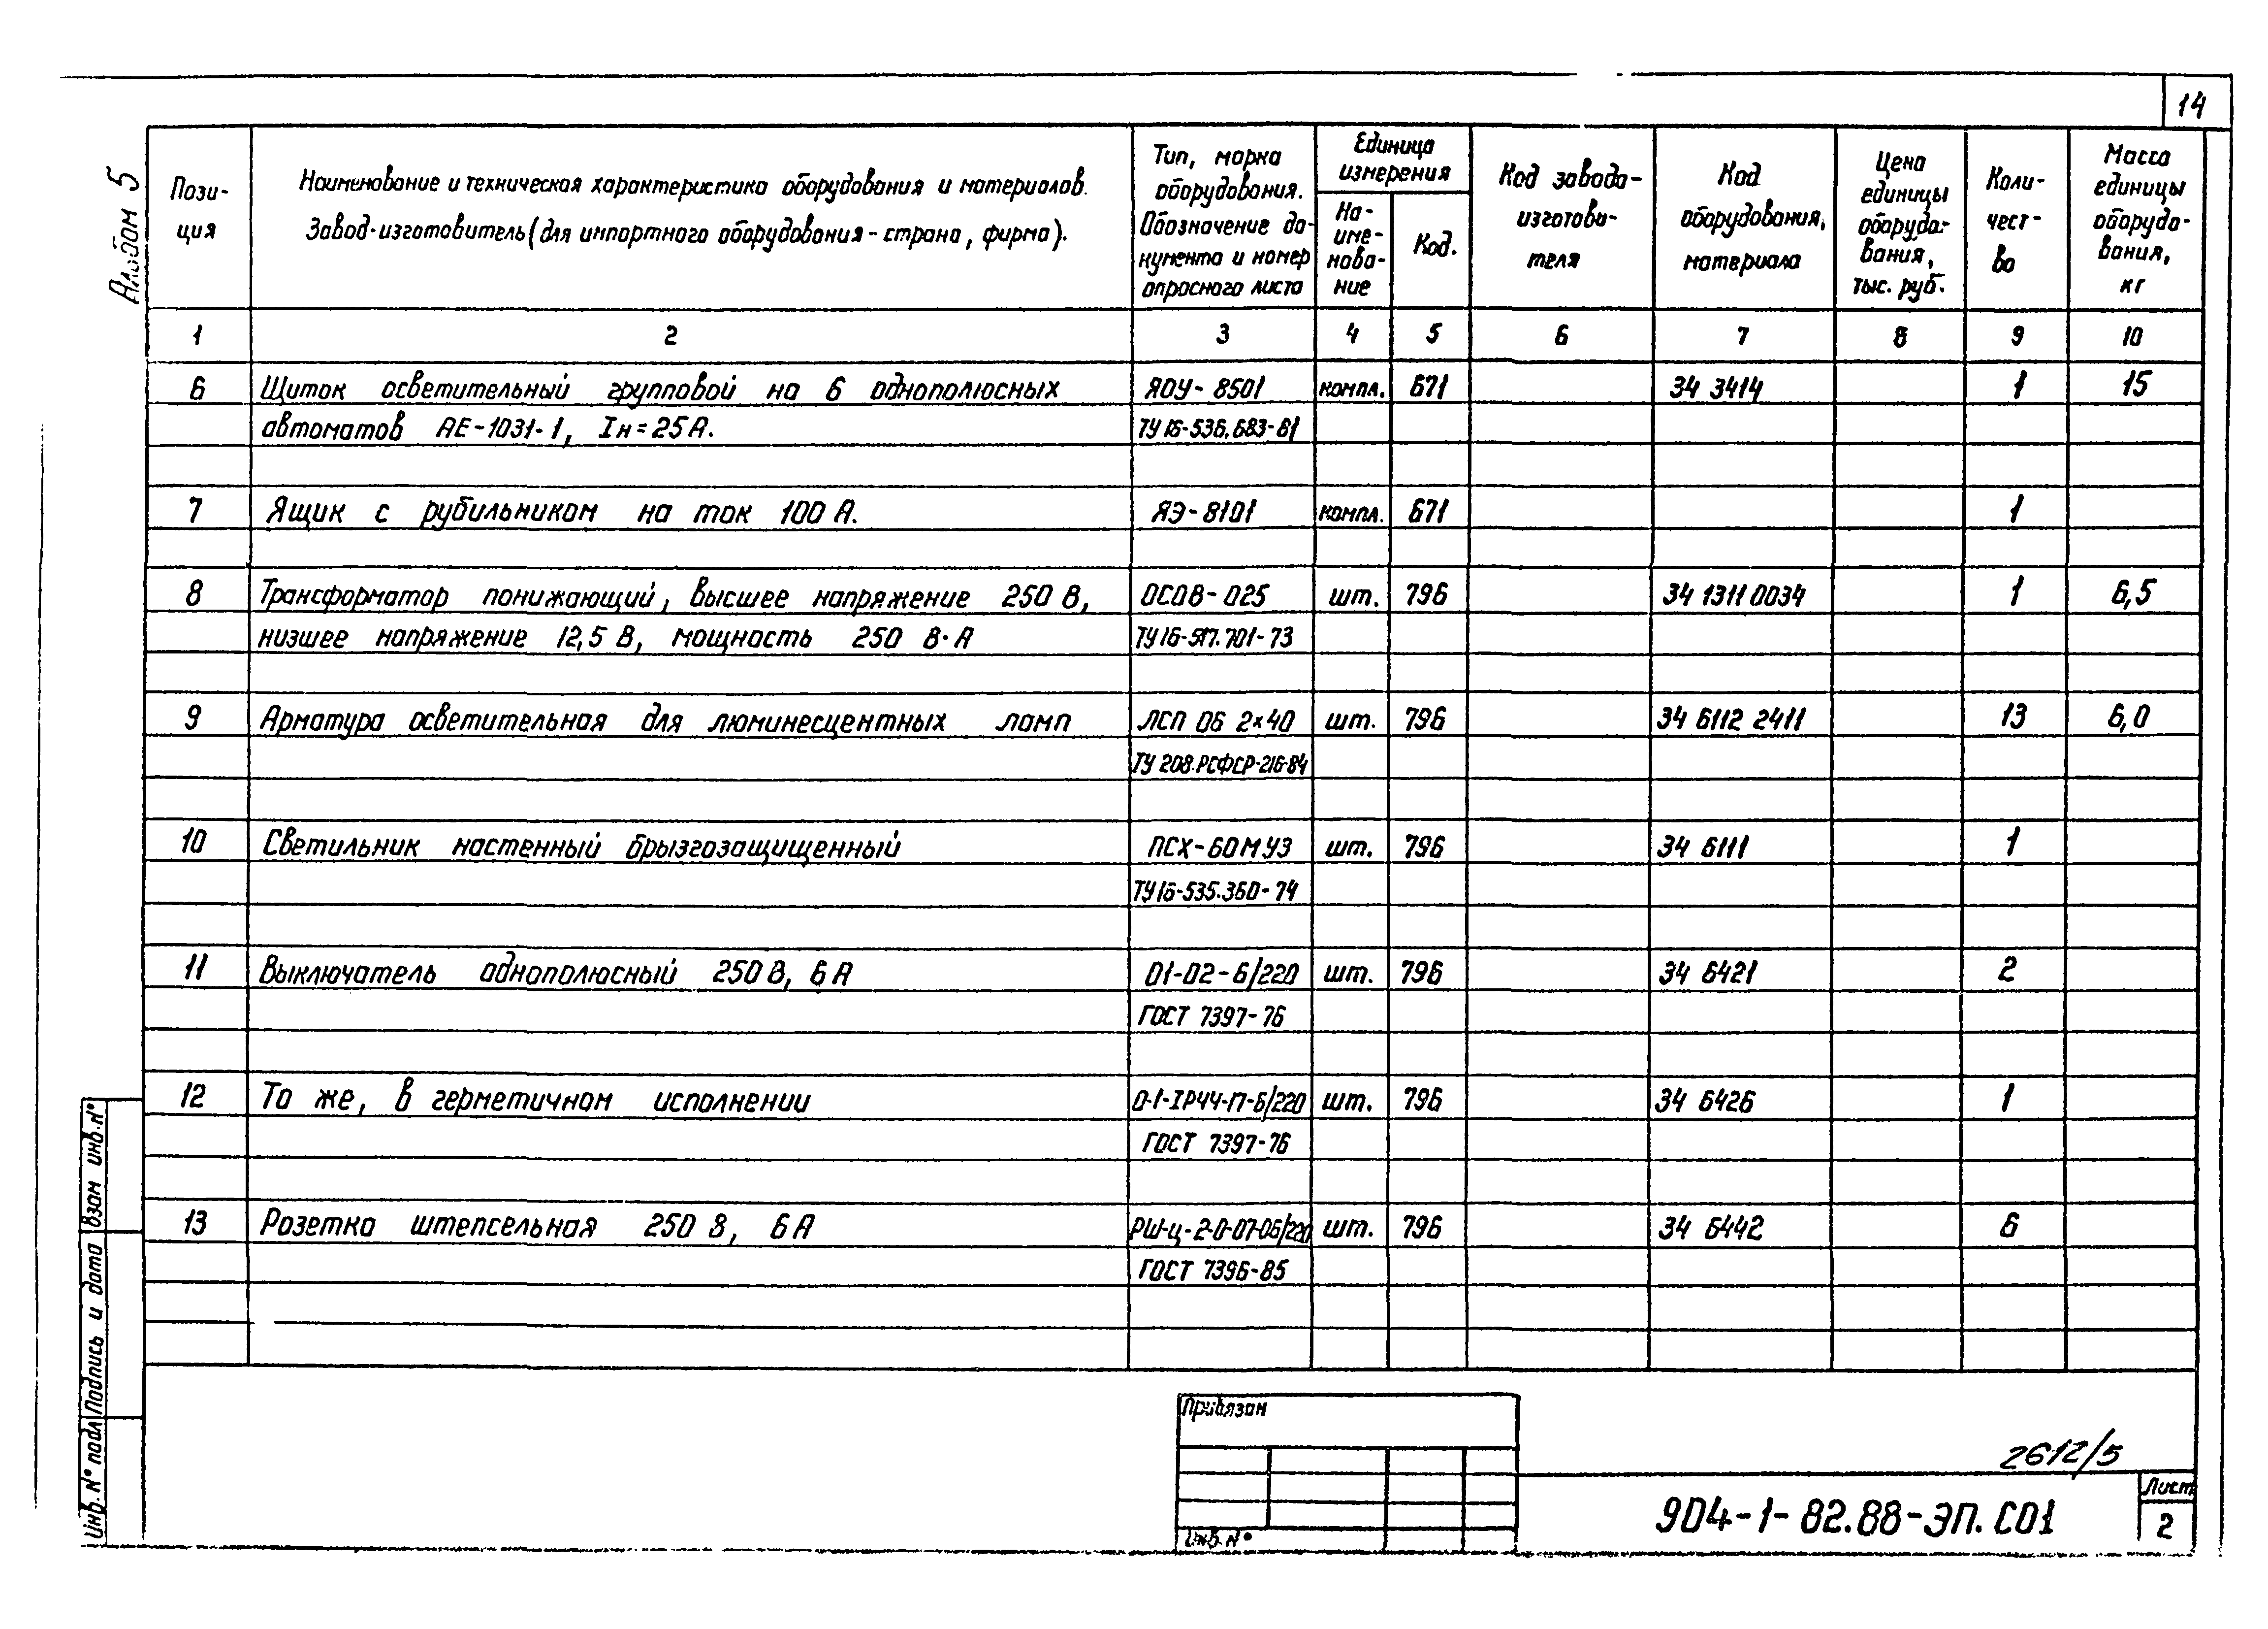 14
Альбом 5
Пози-
ция
Наименование и техническая характеристика оборудования и материалов.
Завод-изготовитель (для импортного оборудования - страна, фирма).
Тип, марка
оборудования.
Обозначение до-
кумента и номер
опросного листа
Единица
измерения
На-
име-
нова-
ние
Код.
Код завода-
изготови-
теля
Код
оборудования,
материала
Цена
единицы
оборудо-
вания,
тыс. руб.
Коли-
чест-
во
Масса
единицы
оборудо-
вания,
кг
1 2 3 4 5 6 7 8 9 10
6 Щиток осветительный групповой на 6 однополюсных ЯОУ-8501 компл. 671 34 3414 1 15
автоматов АЕ-1031-1, Iн=25А. ТУ16-536.683-81
7 Ящик с рубильником на ток 100 А. ЯЭ-8101 компл. 671 1
8 Трансформатор понижающий, высшее напряжение 250 В, ОСОВ-025 шт. 796 34 1311 0034 1 6,5
низшее напряжение 12,5 В, мощность 250 В·А ТУ16-517.701-73
9 Арматура осветительная для люминесцентных ламп ЛСП 06 2×40 шт. 796 34 6112 2411 13 6,0
ТУ 208.РСФСР-216-84
10 Светильник настенный брызгозащищенный ПСХ-60МУ3 шт. 796 34 6111 1
ТУ16-535.360-74
11 Выключатель однополюсный 250 В, 6 А 01-02-6/220 шт. 796 34 6421 2
ГОСТ 7397-76
12 То же, в герметичном исполнении 0-1-IP44-П-6/220 шт. 796 34 6426 1
ГОСТ 7397-76
13 Розетка штепсельная 250 В, 6 А РШ-Ц-2-0-01-06/220 шт. 796 34 6442 6
ГОСТ 7396-85
Взам инв.N°
Подпись и дата
Инв. N° подл
Привязан
Инв. N°
2612/5
904-1-82.88-ЭП.СО1
Лист
2